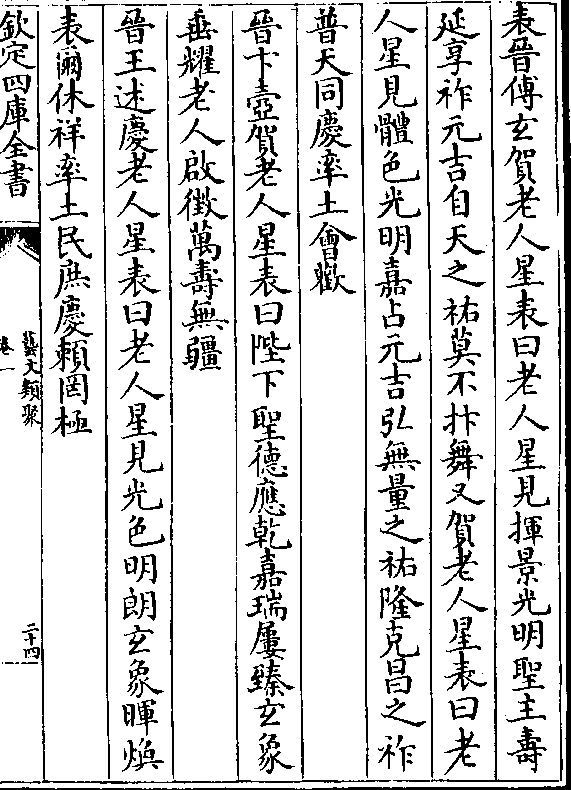 表晉傅玄賀老人星表曰老人星見揮景光明聖主壽
延享祚元吉自天之祐莫不抃舞又賀老人星表曰老
人星見體色光明嘉占元吉弘無量之祐隆克昌之祚
普天同慶率土會歡
晉卞壼賀老人星表曰陛下聖德應乾嘉瑞屢臻玄象
垂耀老人啟徵萬壽無疆
晉王述慶老人星表曰老人星見光色明朗玄象暉煥
表爾休祥率土民庶慶賴罔極
欽定四庫全書
藝文類聚
卷一
二十四